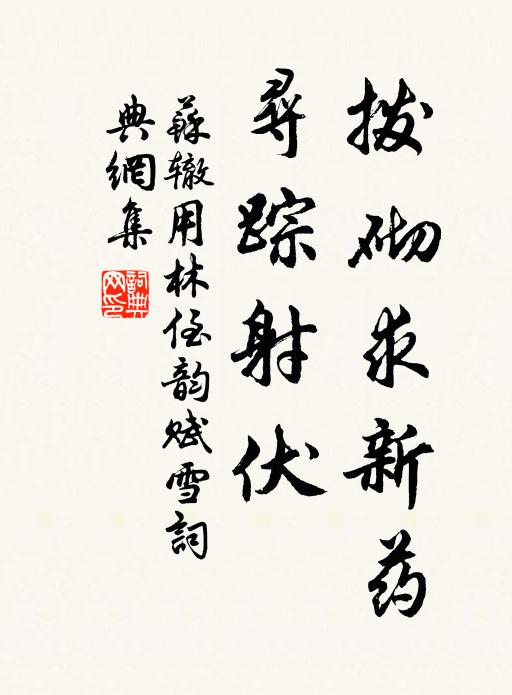 拨砌求新药
寻踪射伏
蘇辙用林侄韵赋雪詞
典網集
詞典
网印